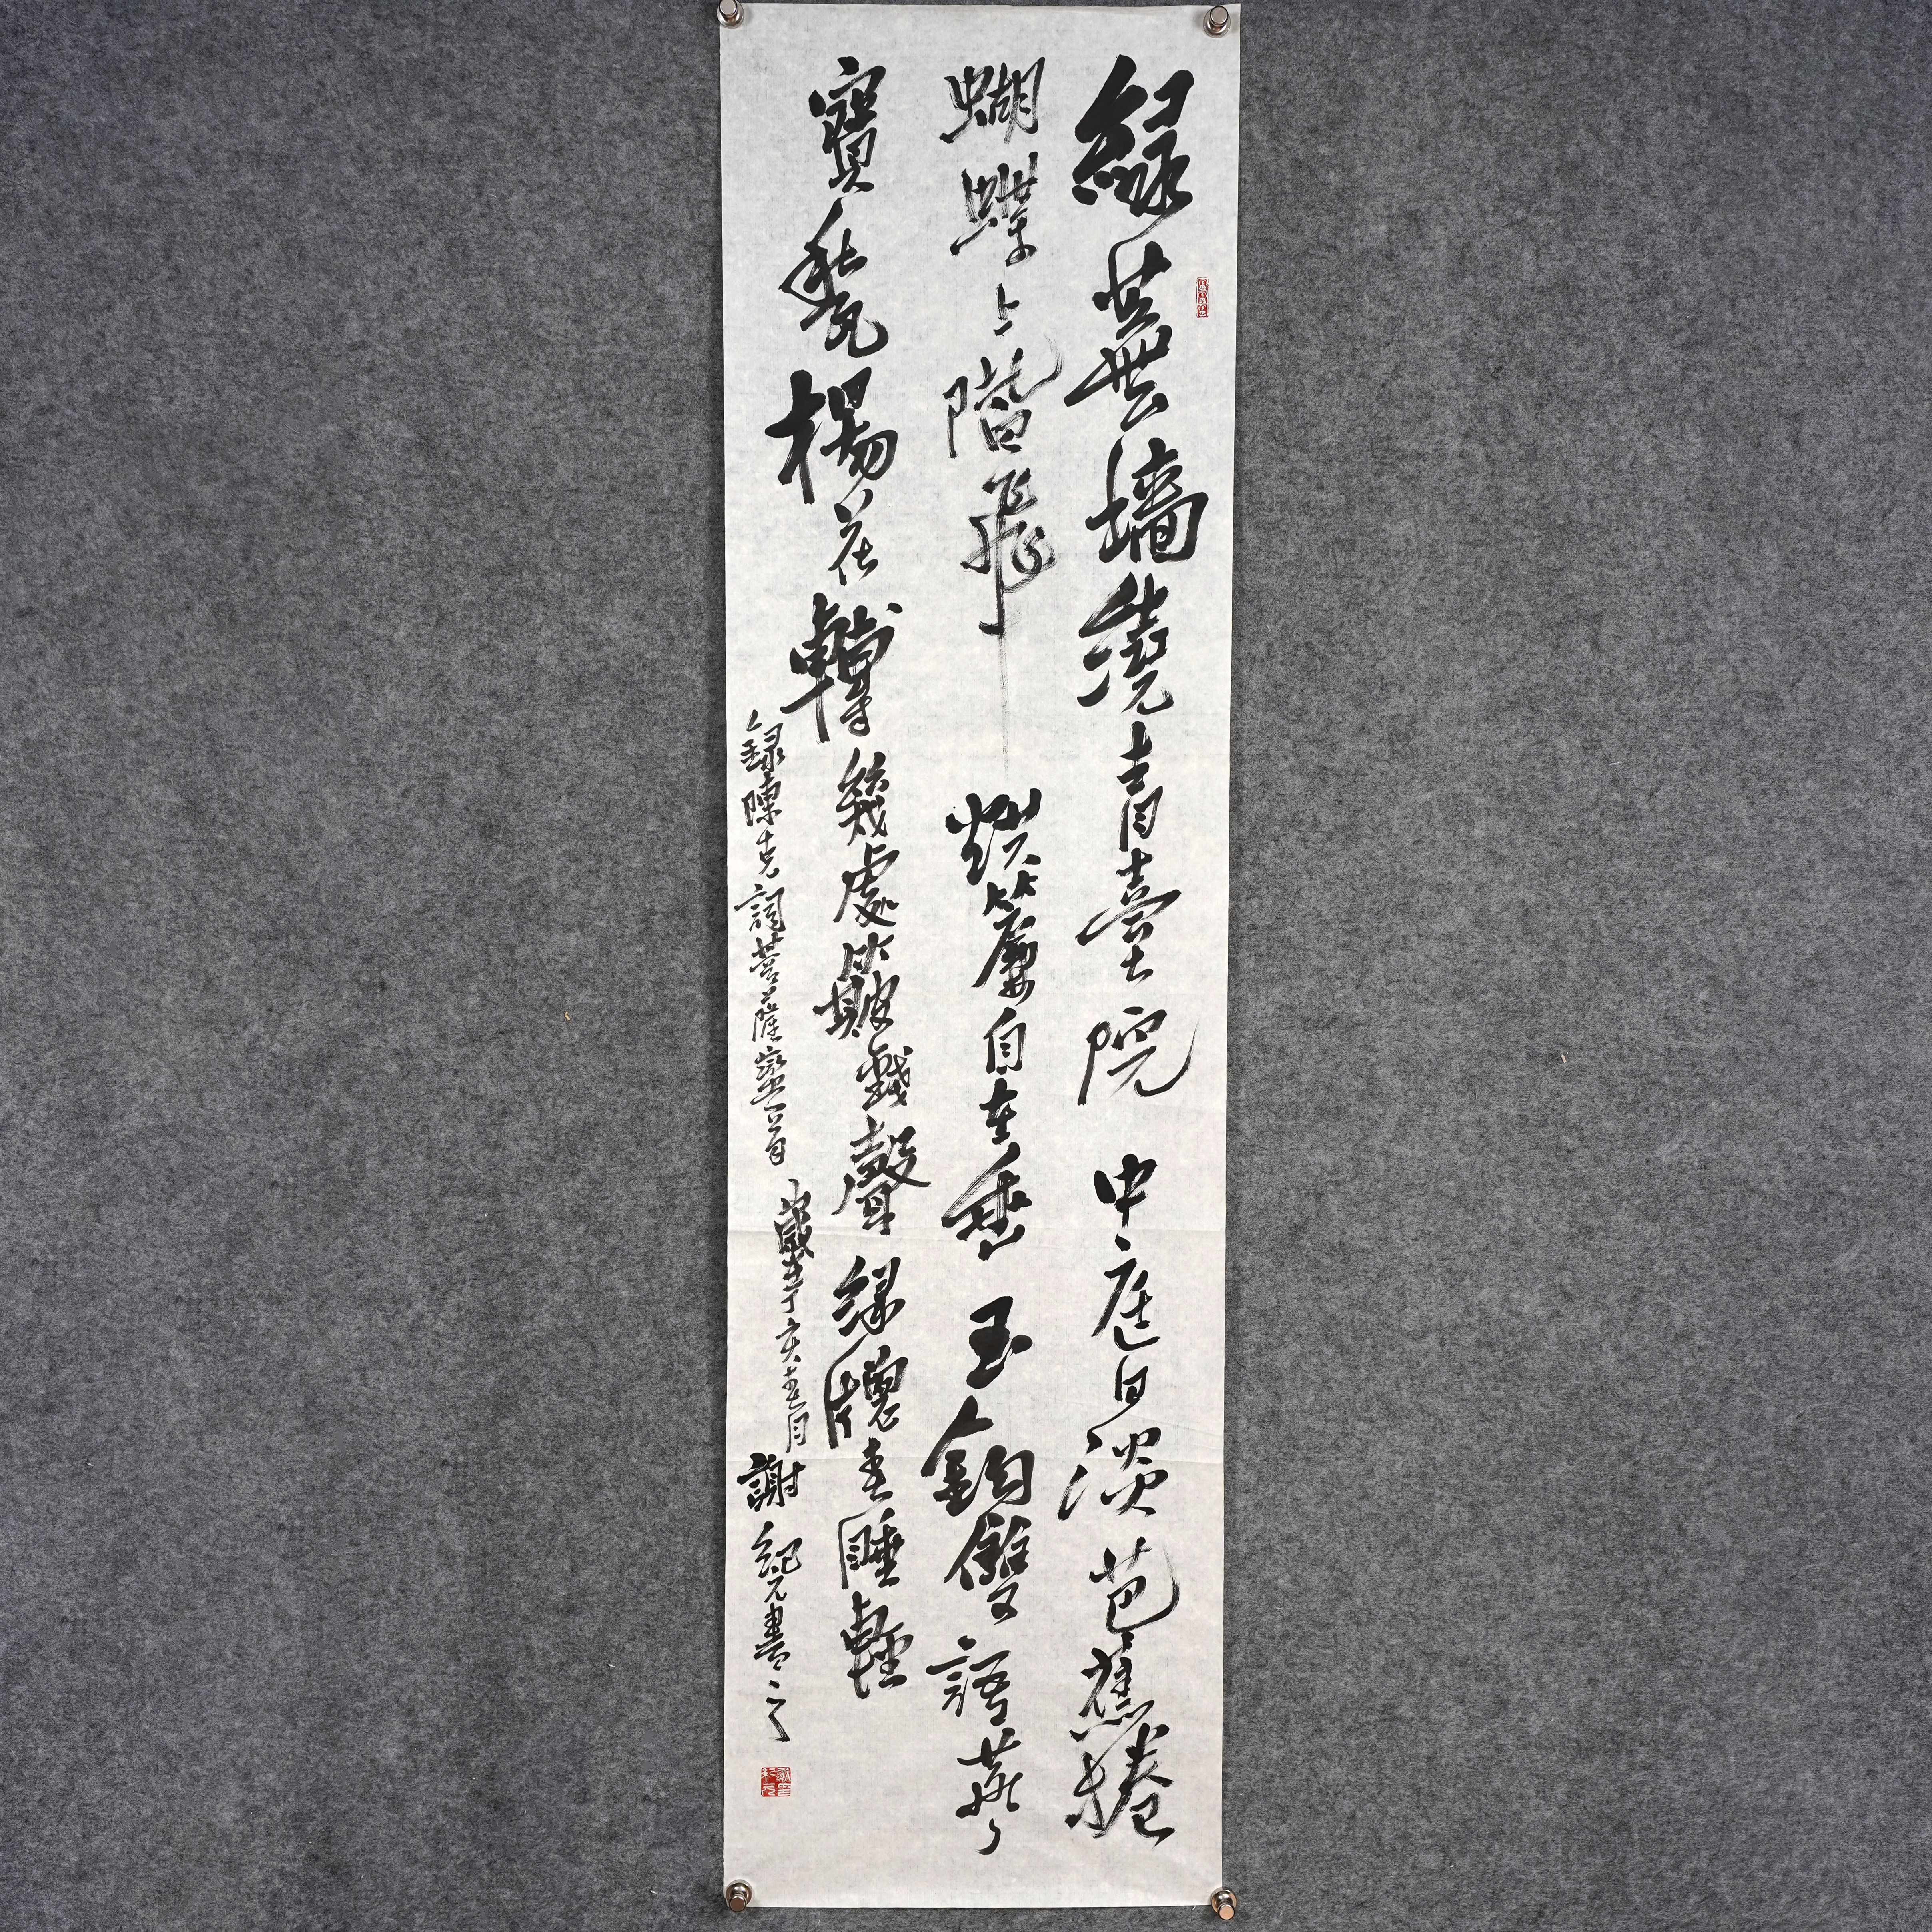 綠蕪墻繞青臺院 中庭日淡芭蕉捲
蝴蝶上階飛 烘簾自在垂 玉鉤雙語燕
寶甃楊花轉 幾處簸錢聲 綠牕春睡輕
錄陳克詞菩薩蠻一首 歲在丁亥春月 謝紀元書之